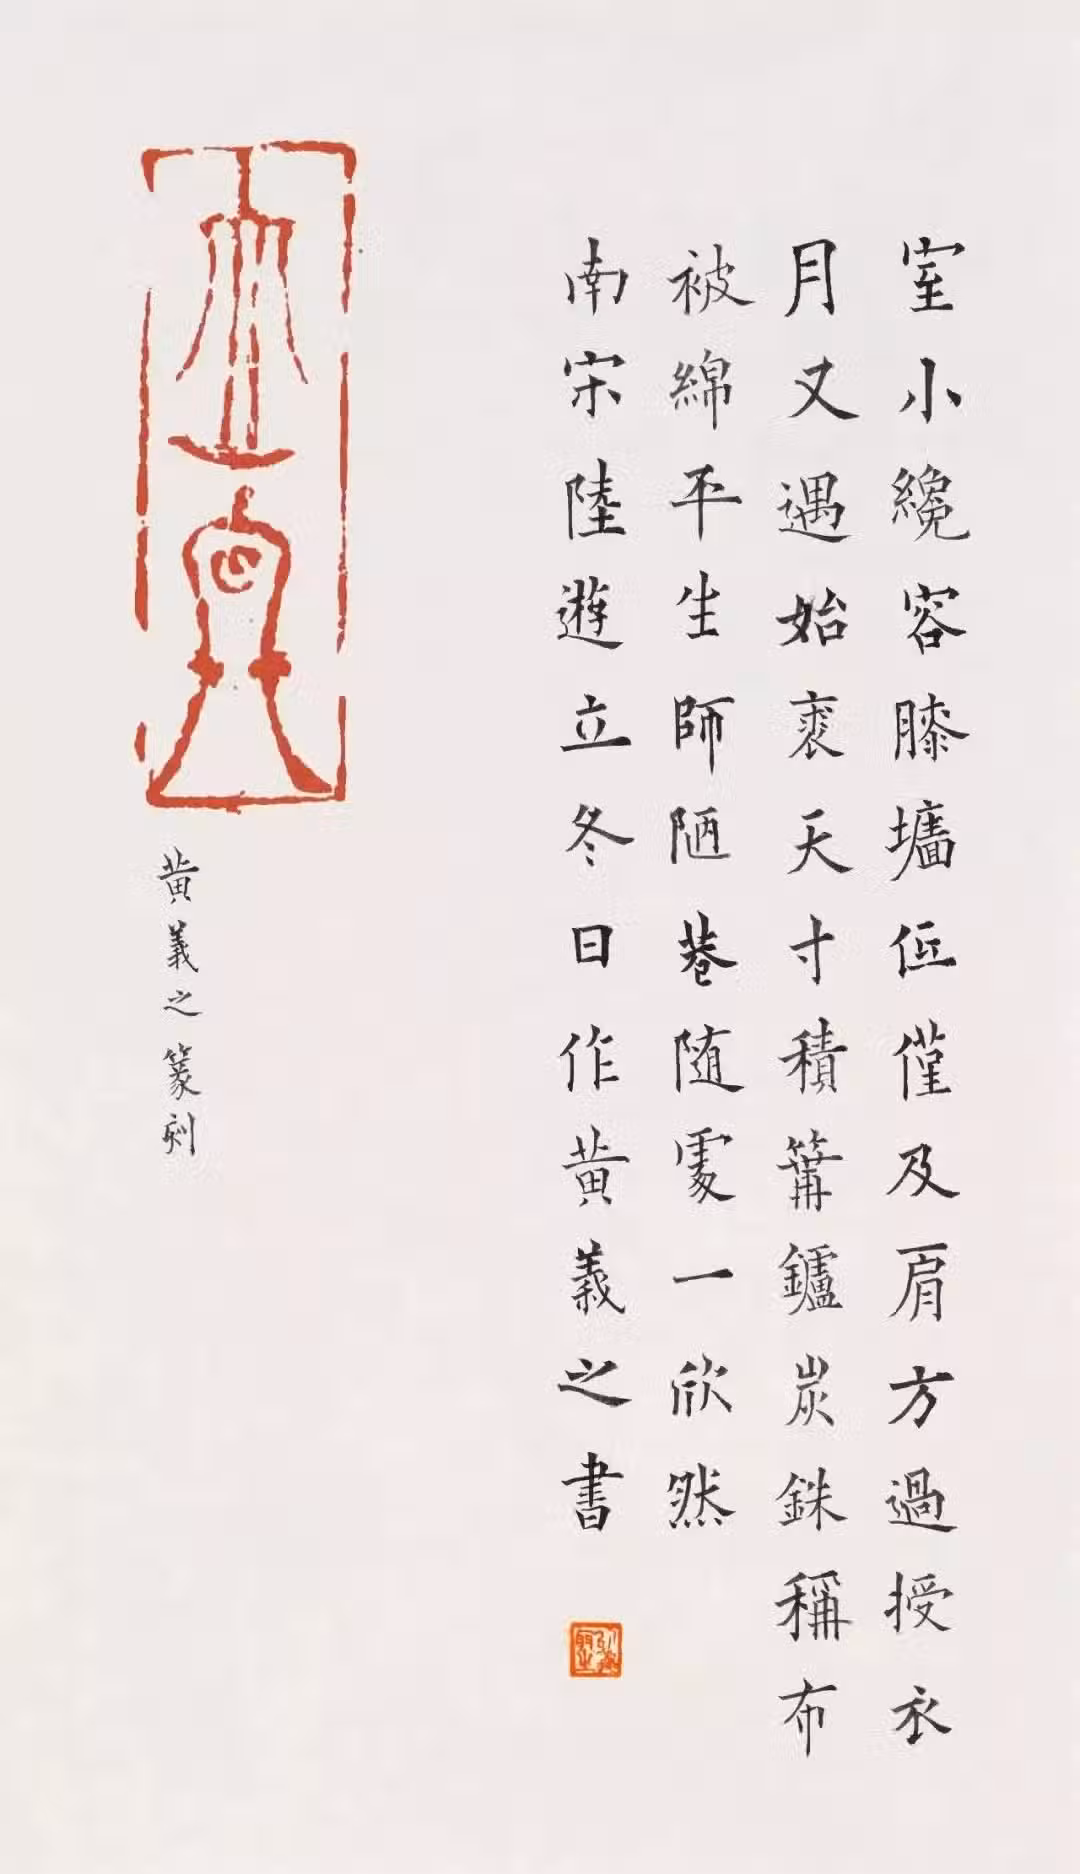 室小纔容膝墻低僅及肩方過授衣
月又遇始裘天寸積篝鑪炭銖稱布
被綿平生師陋巷随處一欣然
南宋陸遊立冬日作黄義之書
黄義之篆刻